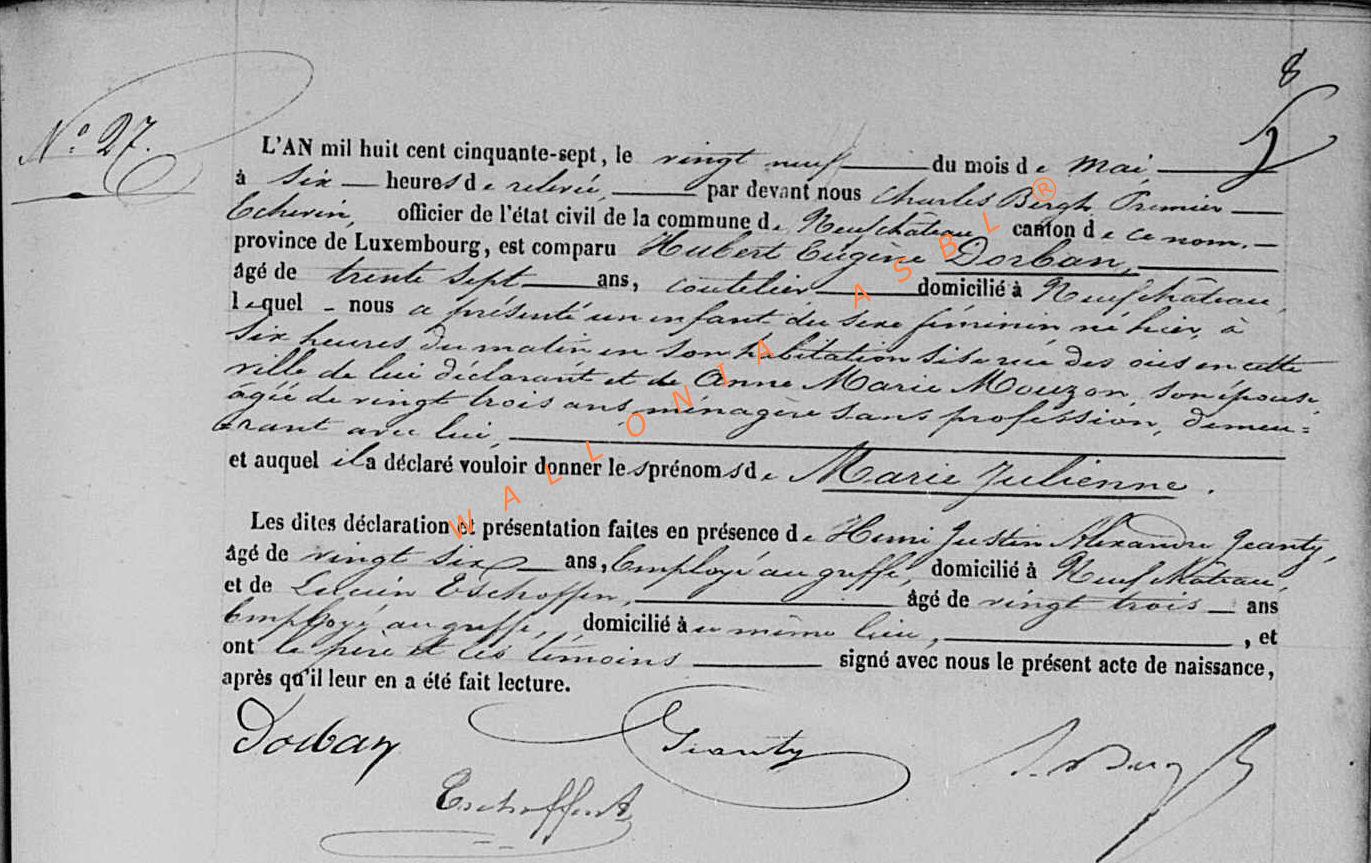 8
N° 27.
L'AN mil huit cent cinquante-sept, le vingt neuf du mois de mai
à six heures de relevée, par devant nous Charles Bergh Premier
Echevin, officier de l'état civil de la commune de Neufchâteau canton de ce nom.
province de Luxembourg, est comparu Hubert Eugène Dorban,
âgé de trente sept ans, coutelier domicilié à Neufchâteau,
lequel nous a présenté un enfant du sexe féminin né hier, à
six heures du matin en son habitation sise rue des oies en cette
ville de lui déclarant et de Anne Marie Mouzon, son épouse,
âgée de vingt trois ans, ménagère sans profession, demeu=
rant avec lui,
et auquel il a déclaré vouloir donner les prénoms de Marie Julienne.
Les dites déclaration et présentation faites en présence de Henri Justin Alexandre Jeanty,
âgé de vingt six ans, Employé au greffe, domicilié à Neufchâteau,
et de Lucien Eschoffen, âgé de vingt trois ans
Employé au greffe, domicilié à ce même lieu, , et
ont le père et les témoins signé avec nous le présent acte de naissance,
après qu'il leur en a été fait lecture.
Dorban Jeanty
WALLONIA ASBL ®